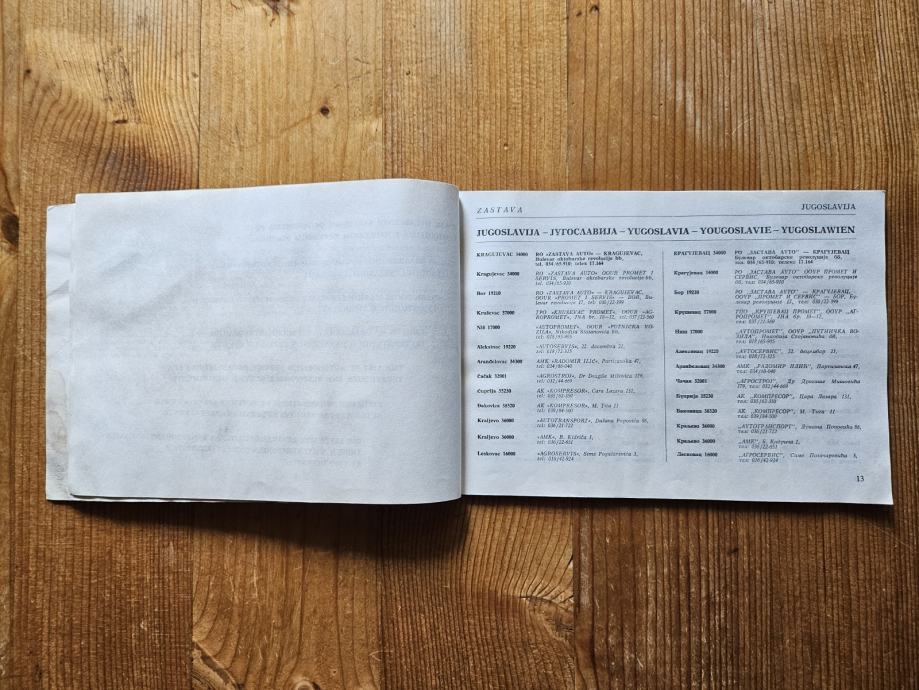 ZASTAVA
JUGOSLAVIJA
JUGOSLAVIJA – ЈУГОСЛАВИЈА – YUGOSLAVIA – YOUGOSLAVIE – YUGOSLAWIEN
KRAGUJEVAC 34000
RO »ZASTAVA AUTO« — KRAGUJEVAC,
Bulevar oktobarske revolucije bb,
tel. 034/65-910; telex 17.164
Kragujevac 34000
RO »ZASTAVA AUTO« OOUR PROMET I
SERVIS, Bulevar oktobarske revolucije bb,
tel: 034/65-910
Bor 19210
RO »ZASTAVA AUTO« — KRAGUJEVAC,
OOUR »PROMET I SERVIS« — BOR, Bu-
levar revolucije 17, tel: 030/22-399
Kruševac 37000
TPO »KRUŠEVAC PROMET« OOUR »AG-
ROPROMET«, JNA br. 10—12,
Niš 17000
»AUTOPROMET«, OOUR »PUTNIČKA VO-
ZILA«, Nikodija Stojanovića bb,
Aleksinac 19220
»AUTOSERVIS«, 22. decembra 21,
tel: 018/72-325
Aranđelovac 34300
AMK »RADOMIR ILIĆ«, Partizanska 47,
Čačak 32001
»AGROSTROJ«, Dr Dragiše Mišovića 179,
tel: 032/44-669
Ćuprija 35230
AK »KOMPRESOR«, Cara Lazara 151,
Đakovica 38320
AK »KOMPRESOR«, M. Tita 11
Kraljevo 36000
»AUTOTRANSPORT«, Dušana Popovića 96,
tel: 036/21-722
Kraljevo 36000
»AMK«, B. Kidriča 1,
tel: 036/22-651
Leskovac 16000
»AGROSERVIS«, Sime Pogačarevića 3,
tel: 016/42-924
КРАГУЈЕВАЦ 34000
РО „ЗАСТАВА АУТО" — КРАГУЈЕВАЦ
Булевар октобарске револуције
бб, тел. 034/65-910; телекс 17.164
Крагујевац 34000
РО „ЗАСТАВА АУТО" ООУР ПРОМЕТ И
СЕРВИС, Булевар октобарске револуције
бб, тел: 034/65-910
Бор 19210
РО „ЗАСТАВА АУТО" — КРАГУЈЕВАЦ,
ООУР „ПРОМЕТ И СЕРВИС" — БОР, Бу-
левар револуције 17, тел: 030/22-399
Крушевац 37000
ТПО „КРУШЕВАЦ ПРОМЕТ" ООУР „АГ-
РОПРОМЕТ", ЈНА бр. 10—12,
Ниш 17000
„АУТОПРОМЕТ", ООУР „ПУТНИЧКА ВО-
ЗИЛА", Никодија Стојановића бб,
Алексинац 19220
„АУТОСЕРВИС", 22. децембар 21,
тел: 018/72-325
Аранђеловац 34300
АМК „РАДОМИР ИЛИЋ", Партизанска 47,
Чачак 32001
„АГРОСТРОЈ", Др Драгише Мишовића
179, тел: 032/44-669
Ћуприја 35230
АК „КОМПРЕСОР", Цара Лазара 151,
Ђаковица 38320
АК „КОМПРЕСОР", М. Тита 11
Краљево 36000
„АУТОТРАНСПОРТ", Душана Поповића 96,
тел: 036/21-722
Краљево 36000
„АМК", Б. Кидрича 1,
тел: 036/22-651
Лесковац 16000
„АГРОСЕРВИС", Симе Погачаревића 3,
тел: 016/42-924
13